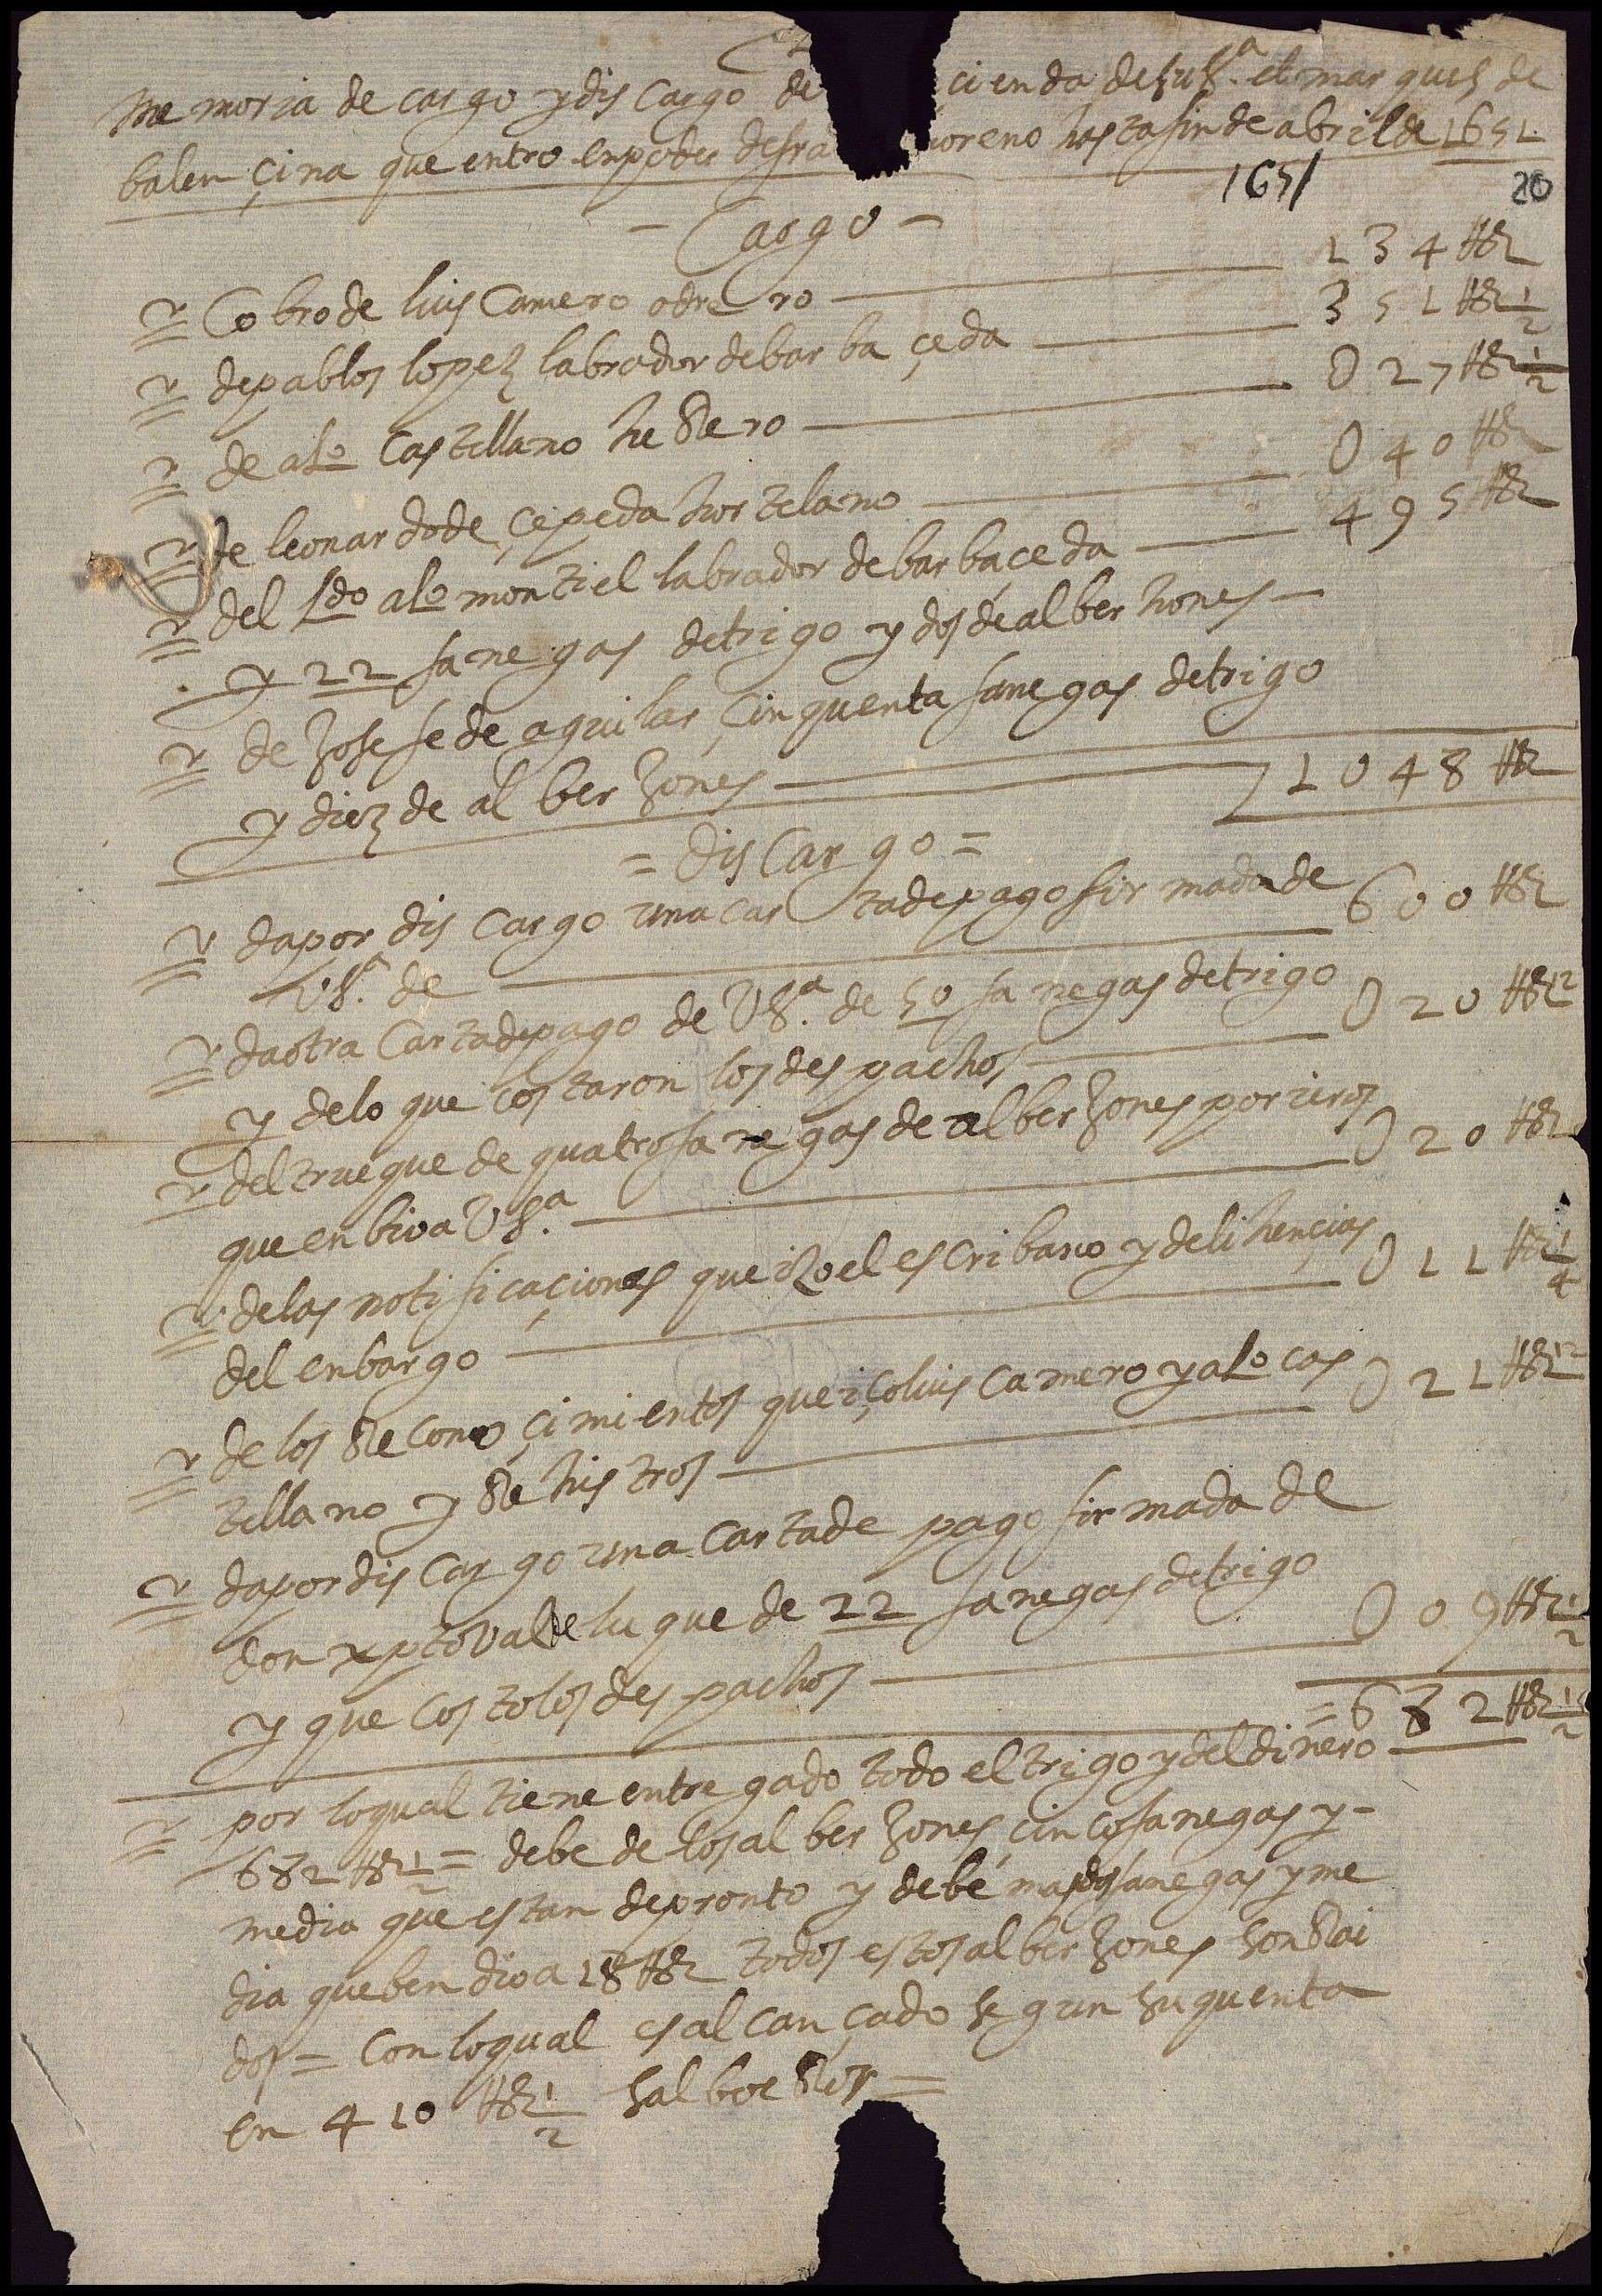 memoria de cargo y dis cargo de cienda de su sª. el marques de
balençina que entro en poder de fra moreno hasta fin de abril de 1651
1651 20
- Cargo -
Cobro de luis Camero odrero 134 Rs
de pablos lopez labrador de barbaçeda 351 Rs 1/2
de alo castellano heRero 027 Rs 1/2
de leonardo de çepeda hortelano 040 Rs
del ldo alo montiel labrador de barbaçeda 495 Rs
y 22 fanegas de trigo y dos de alberhones
de Josefe de aguilar çinquenta fanegas de trigo
y diez de alberjones 1048 Rs
= dis Cargo =
da por dis cargo una carta de pago firmada de 600 Rs
V Sª. de
da otra carta de pago de V Sª. de 50 fanegas de trigo
y de lo que costaron los despachos 020 Rs 1/2
del trueque de quatro fanegas de alberjones por
que enbio a V Sª. 020 Rs
de las notificaçiones que iço el escribano y delihençias
del enbargo 011 Rs 1/4
de los Reconoçimientos que iço luis camero y alo cas
tellano y Rehistros 021 Rs 1/2
da por dis cargo una carta de pago firmada de
don xptoval de luque de 22 fanegas de trigo
y que costo los despachos 009 Rs 1/2
= 682 Rs 1/2
por lo qual tiene entregado todo el trigo y del dinero
682 Rs 1/2 = debe de los alberjones cinco fanegas y -
media que estan de pronto y debe mas dos fanegas y me
dia que bendio a 18 Rs todos estos alberjones son Rai
dos = con lo qual es alcançado segun su quenta
en 410 Rs 1/2 salbo eRor =